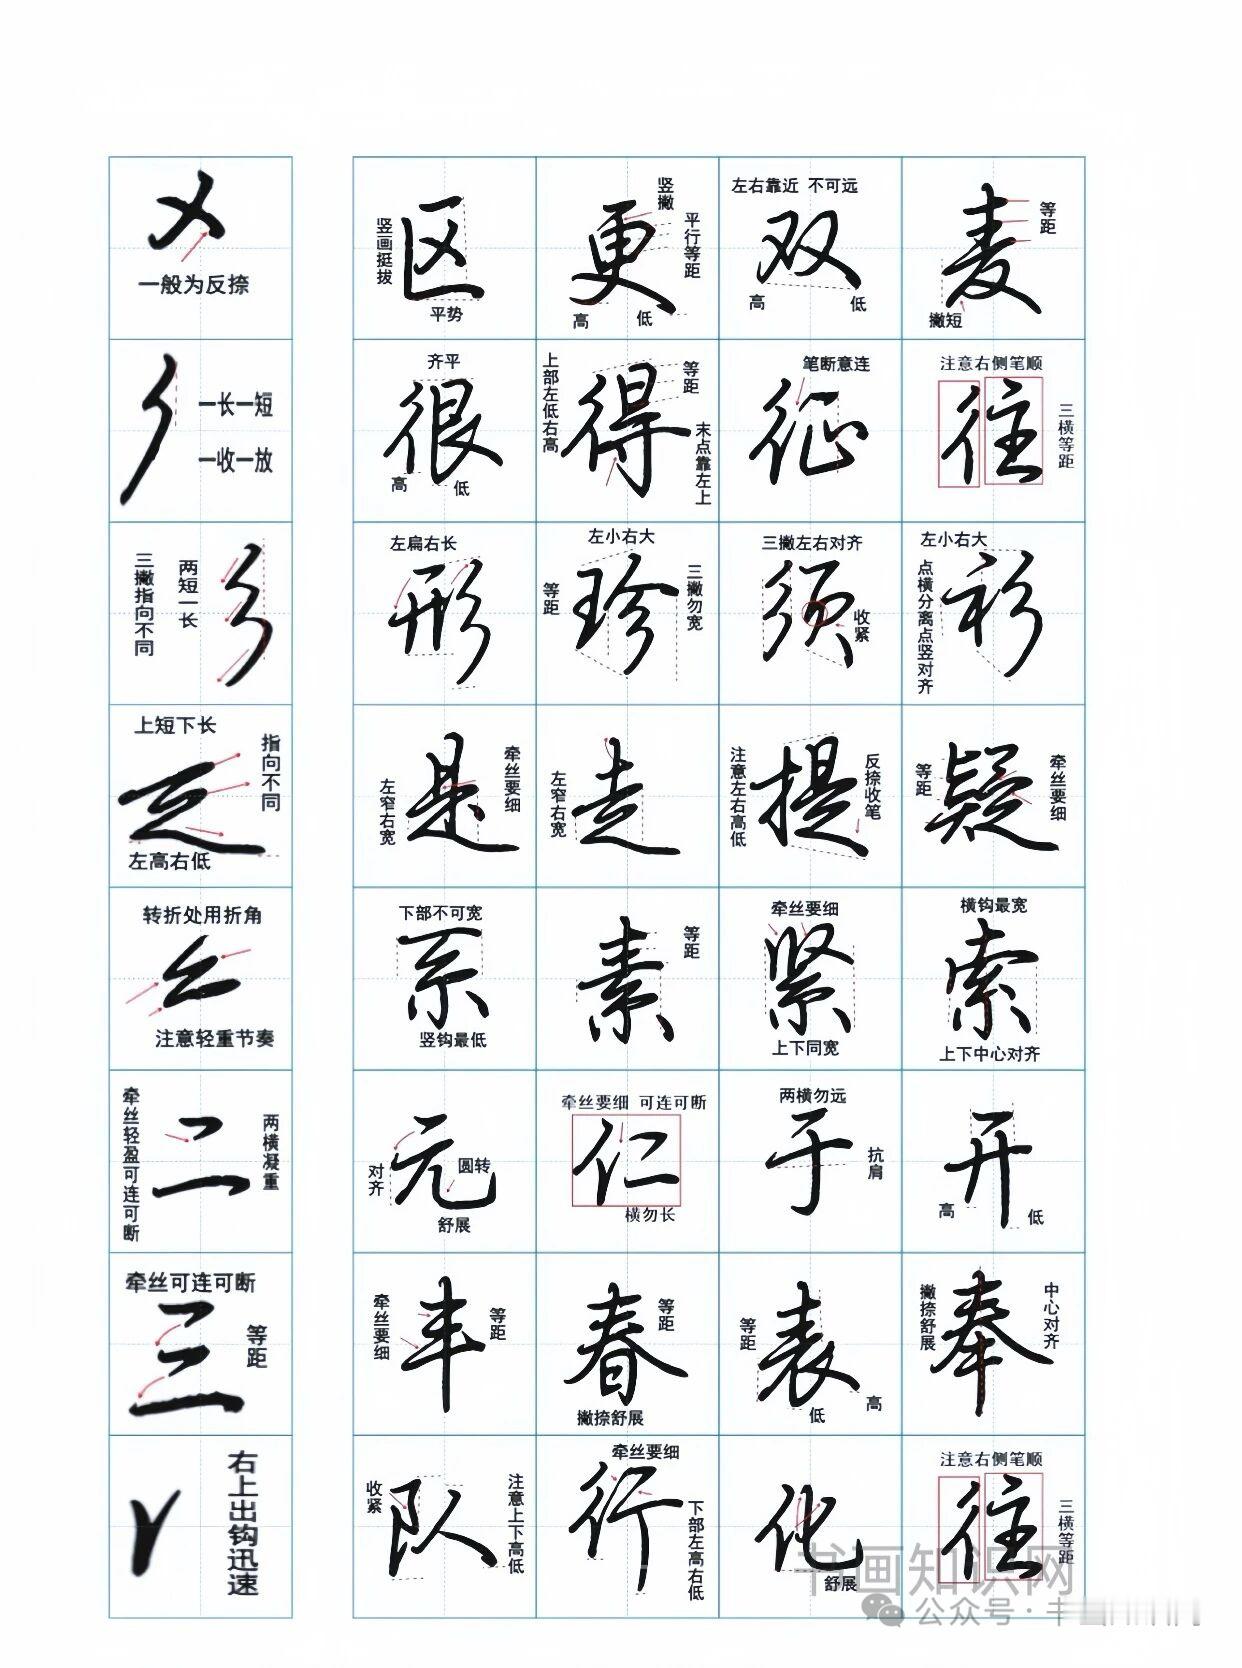 一般为反捺
区
竖画挺拔
平势
更
竖撇
平行等距
高
低
左右靠近 不可远
双
高
低
麦
等距
撇短
一长一短
一收一放
齐平
很
高
低
上部左低右高
得
等距
末点靠左上
笔断意连
征
注意右侧笔顺
往
三横等距
三撇指向不同
两短一长
左扁右长
形
左小右大
等距
珍
三撇勿宽
三撇左右对齐
须
收紧
左小右大
点横分离点竖对齐
衫
上短下长
指向不同
左高右低
左窄右宽
是
牵丝要细
左窄右宽
走
注意左右高低
提
反捺收笔
等距
疑
牵丝要细
转折处用折角
注意轻重节奏
下部不可宽
系
竖钩最低
素
等距
牵丝要细
紧
上下同宽
横钩最宽
索
上下中心对齐
牵丝轻盈可连可断
二
两横凝重
元
对齐
圆转
舒展
牵丝要细 可连可断
仁
横勿长
两横勿远
于
抗肩
开
高
低
牵丝可连可断
三
等距
牵丝要细
丰
等距
春
等距
撇捺舒展
等距
表
低
高
撇捺舒展
奉
中心对齐
右上出钩迅速
收紧
队
注意上下高低
牵丝要细
行
下部左高右低
化
舒展
注意右侧笔顺
往
三横等距
书画知识网
公众号·丰